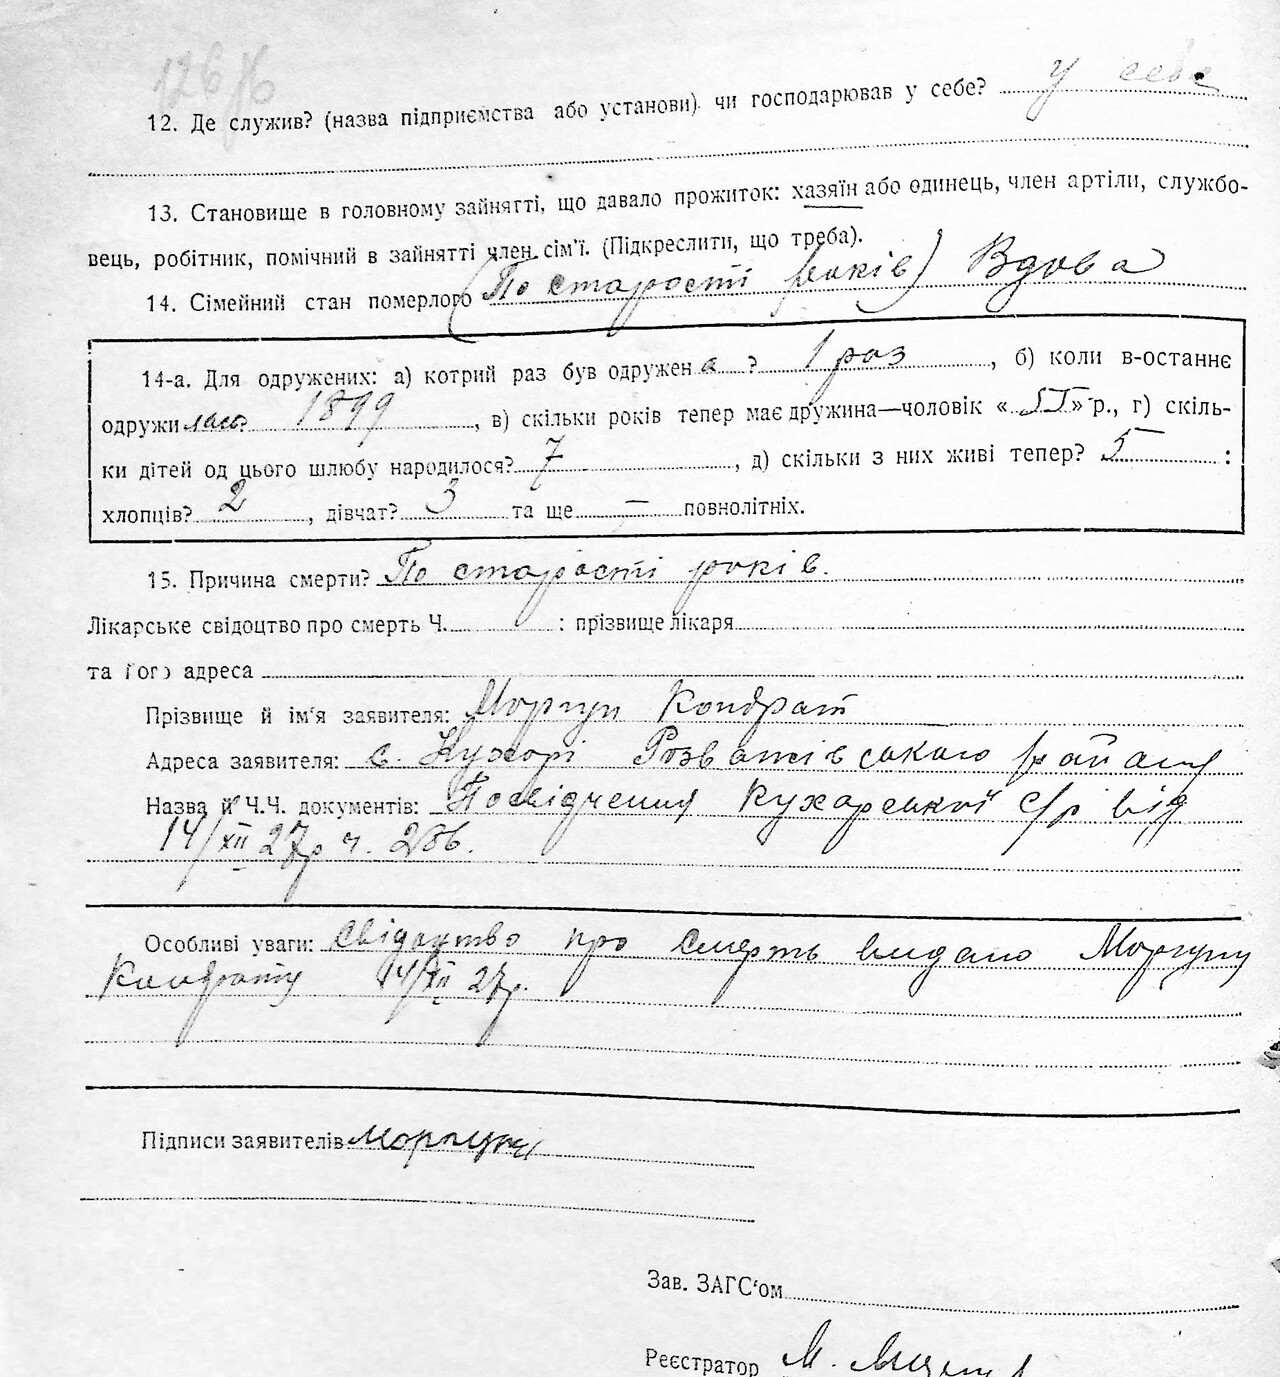 126
12. Де служив? (назва підприємства або установи) чи господарював у себе? у себе
13. Становище в головному зайнятті, що давало прожиток: хазяїн або одинець, член артіли, службо-
вець, робітник, помічний в зайнятті член сім'ї. (Підкреслити, що треба).
14. Сімейний стан померлого (По старості років) Вдова
14-а. Для одружених: а) котрий раз був одружен а ? 1 раз, б) коли в-останнє
одружилась? 1899, в) скільки років тепер має дружина—чоловік « » р., г) скіль-
ки дітей од цього шлюбу народилося? 7, д) скільки з них живі тепер? 5 :
хлопців? 2, дівчат? 3 та ще — повнолітніх.
15. Причина смерти? По старості років.
Лікарське свідоцтво про смерть Ч. : прізвище лікаря
та його адреса
Прізвище й ім'я заявителя: Моргун Кондрат
Адреса заявителя: с. Кухарі Розважівського району
Назва й Ч.Ч. документів: Посвідчення Кухарської с/р від
14/XII 27р ч. 286.
Особливі уваги: Свідоцтво про смерть видано Моргуну
Кондрату 14/XII 27р.
Підписи заявителів Моргун
Зав. ЗАГС'ом
Реєстратор М.